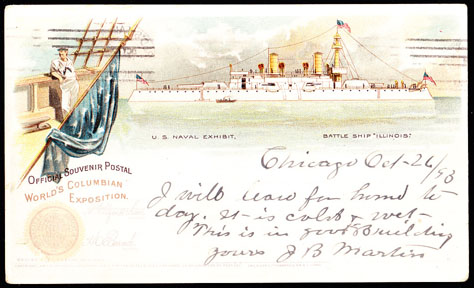 U. S. NAVAL EXHIBIT,
BATTLE SHIP "ILLINOIS."
OFFICIAL SOUVENIR POSTAL
WORLD'S COLUMBIAN
EXPOSITION.
Chicago Oct-26/93
I will leave for home to
day. It is cold & wet-
This is in good Building
yours J B Martin